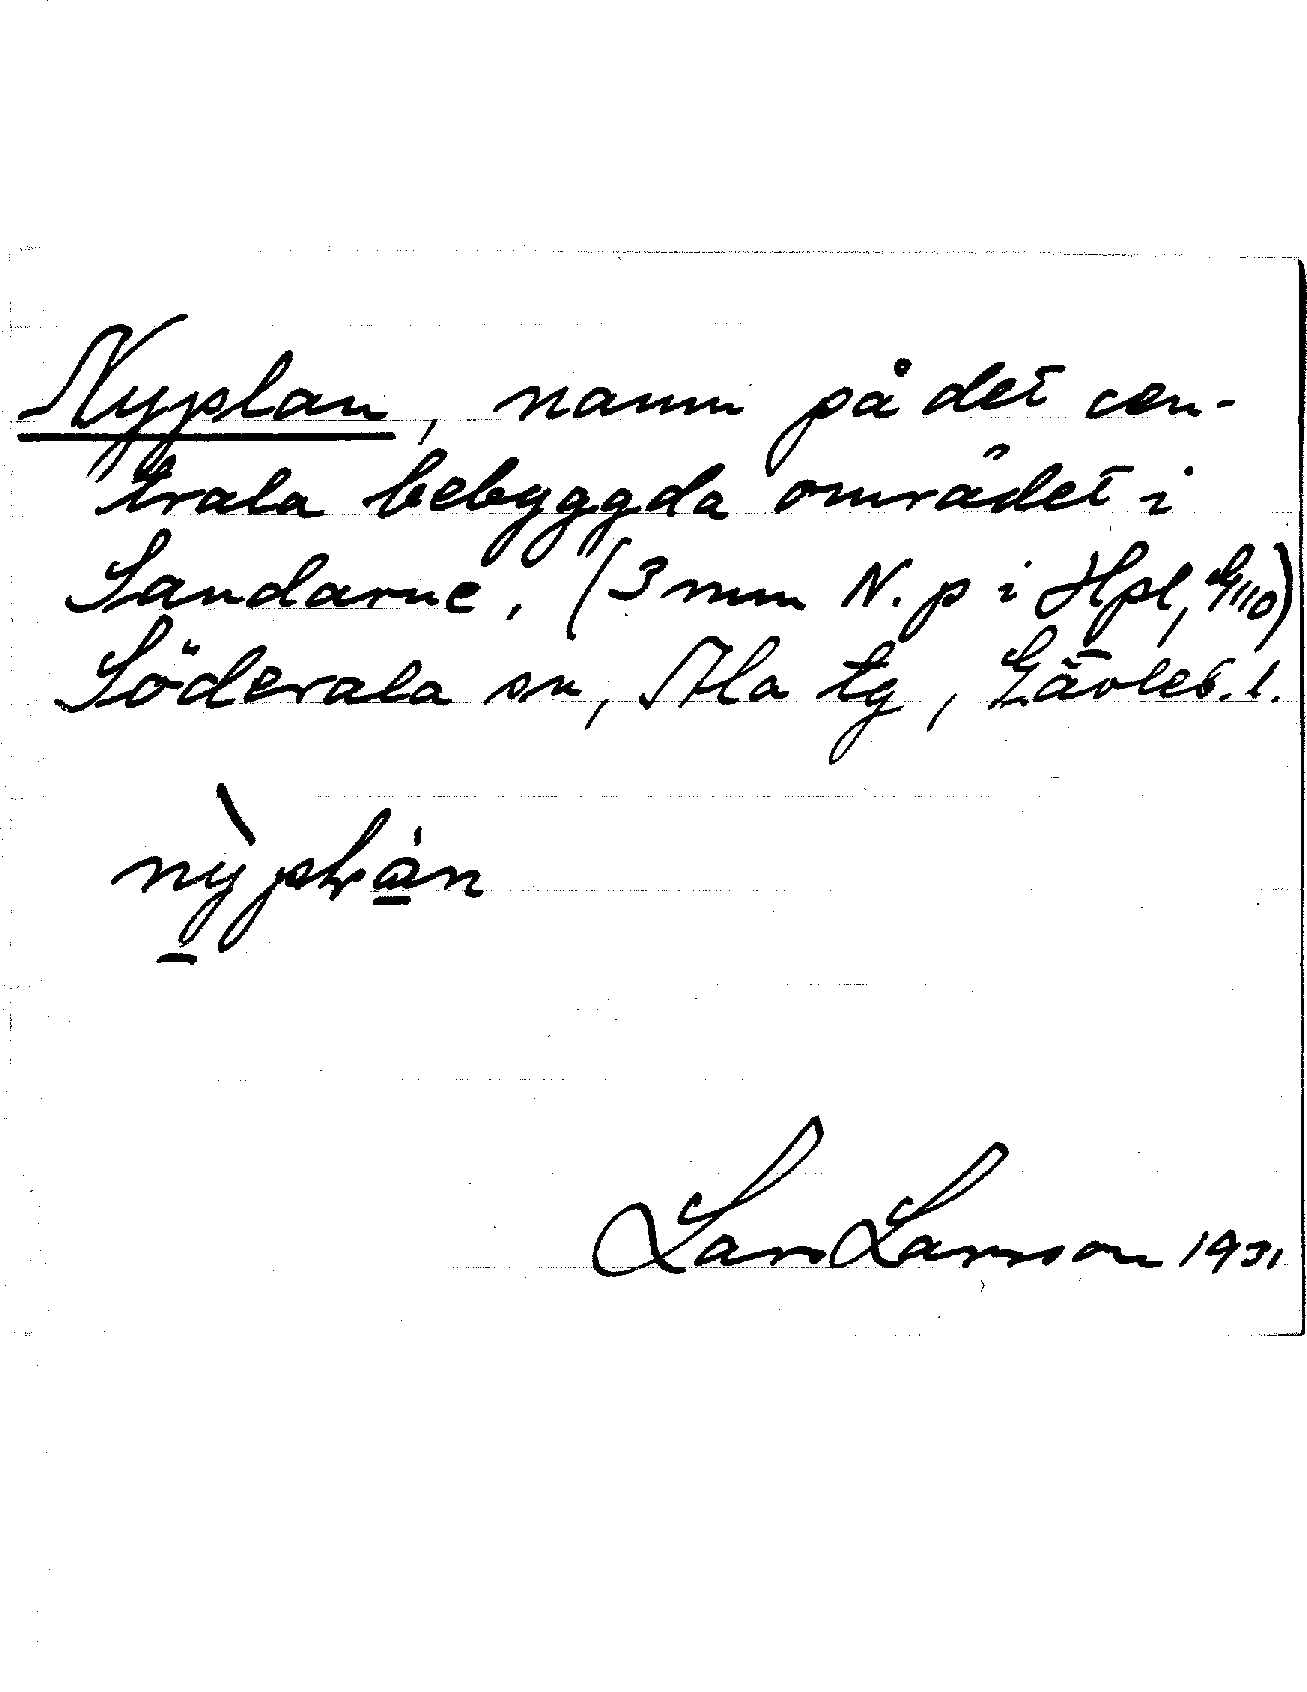 Nyplan, namn på det cen-
trala bebyggda området i
Sandarne. (3 mm N. p i Hpl, G110)
Söderala sn, Ala tg, Gävleb. l.
Lars Larsson 1931